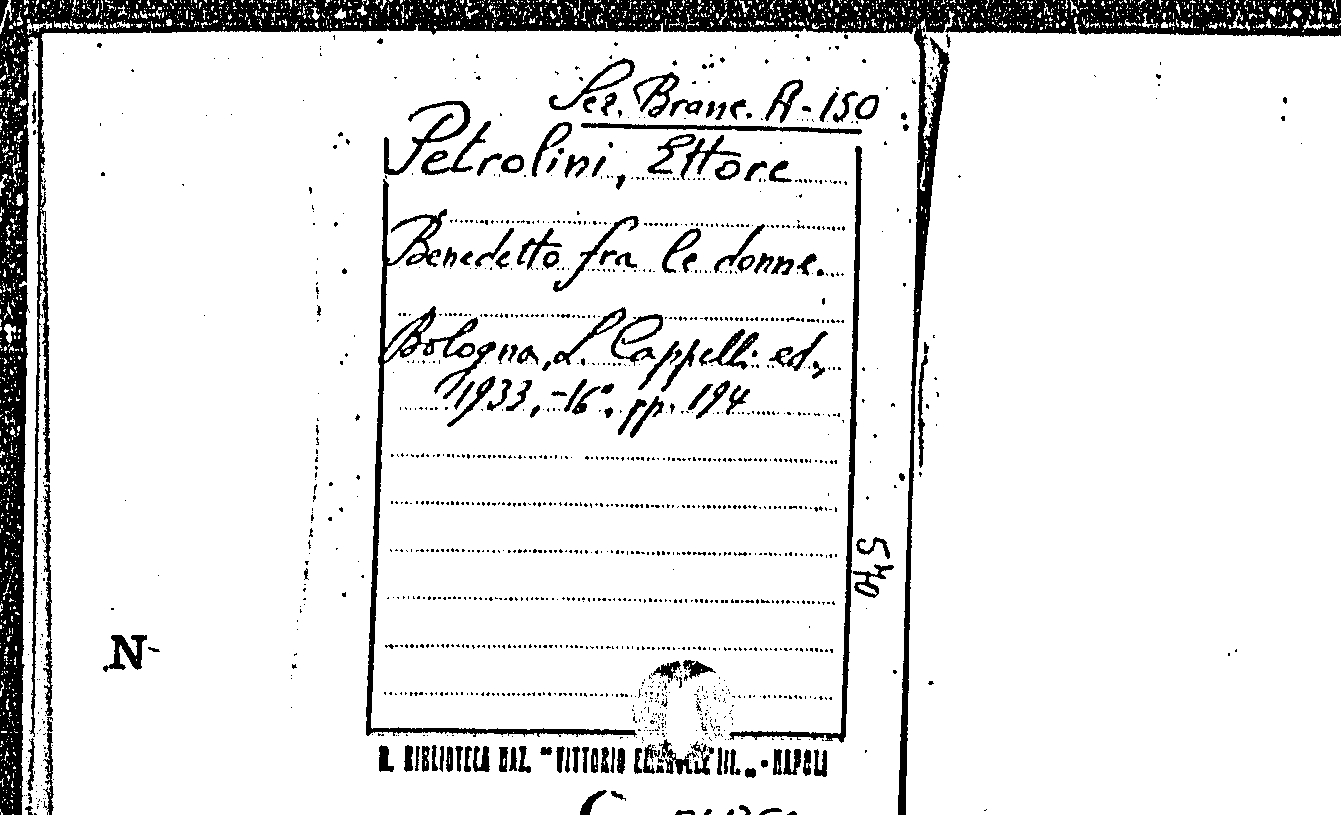 Sez. Branc. A-150
Petrolini, Ettore
Benedetto fra le donne.
Bologna, L. Cappelli ed.,
1933, -16°, pp. 194
540
N
R. BIBLIOTECA NAZ. "VITTORIO EMANUELE III.„ - NAPOLI